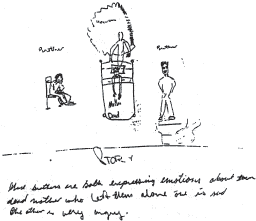 Brother
Brother
Mother
Dead
STORY
These brothers are both expressing emotions about their
dead mother who left them alone one is sad
the other is very angry.